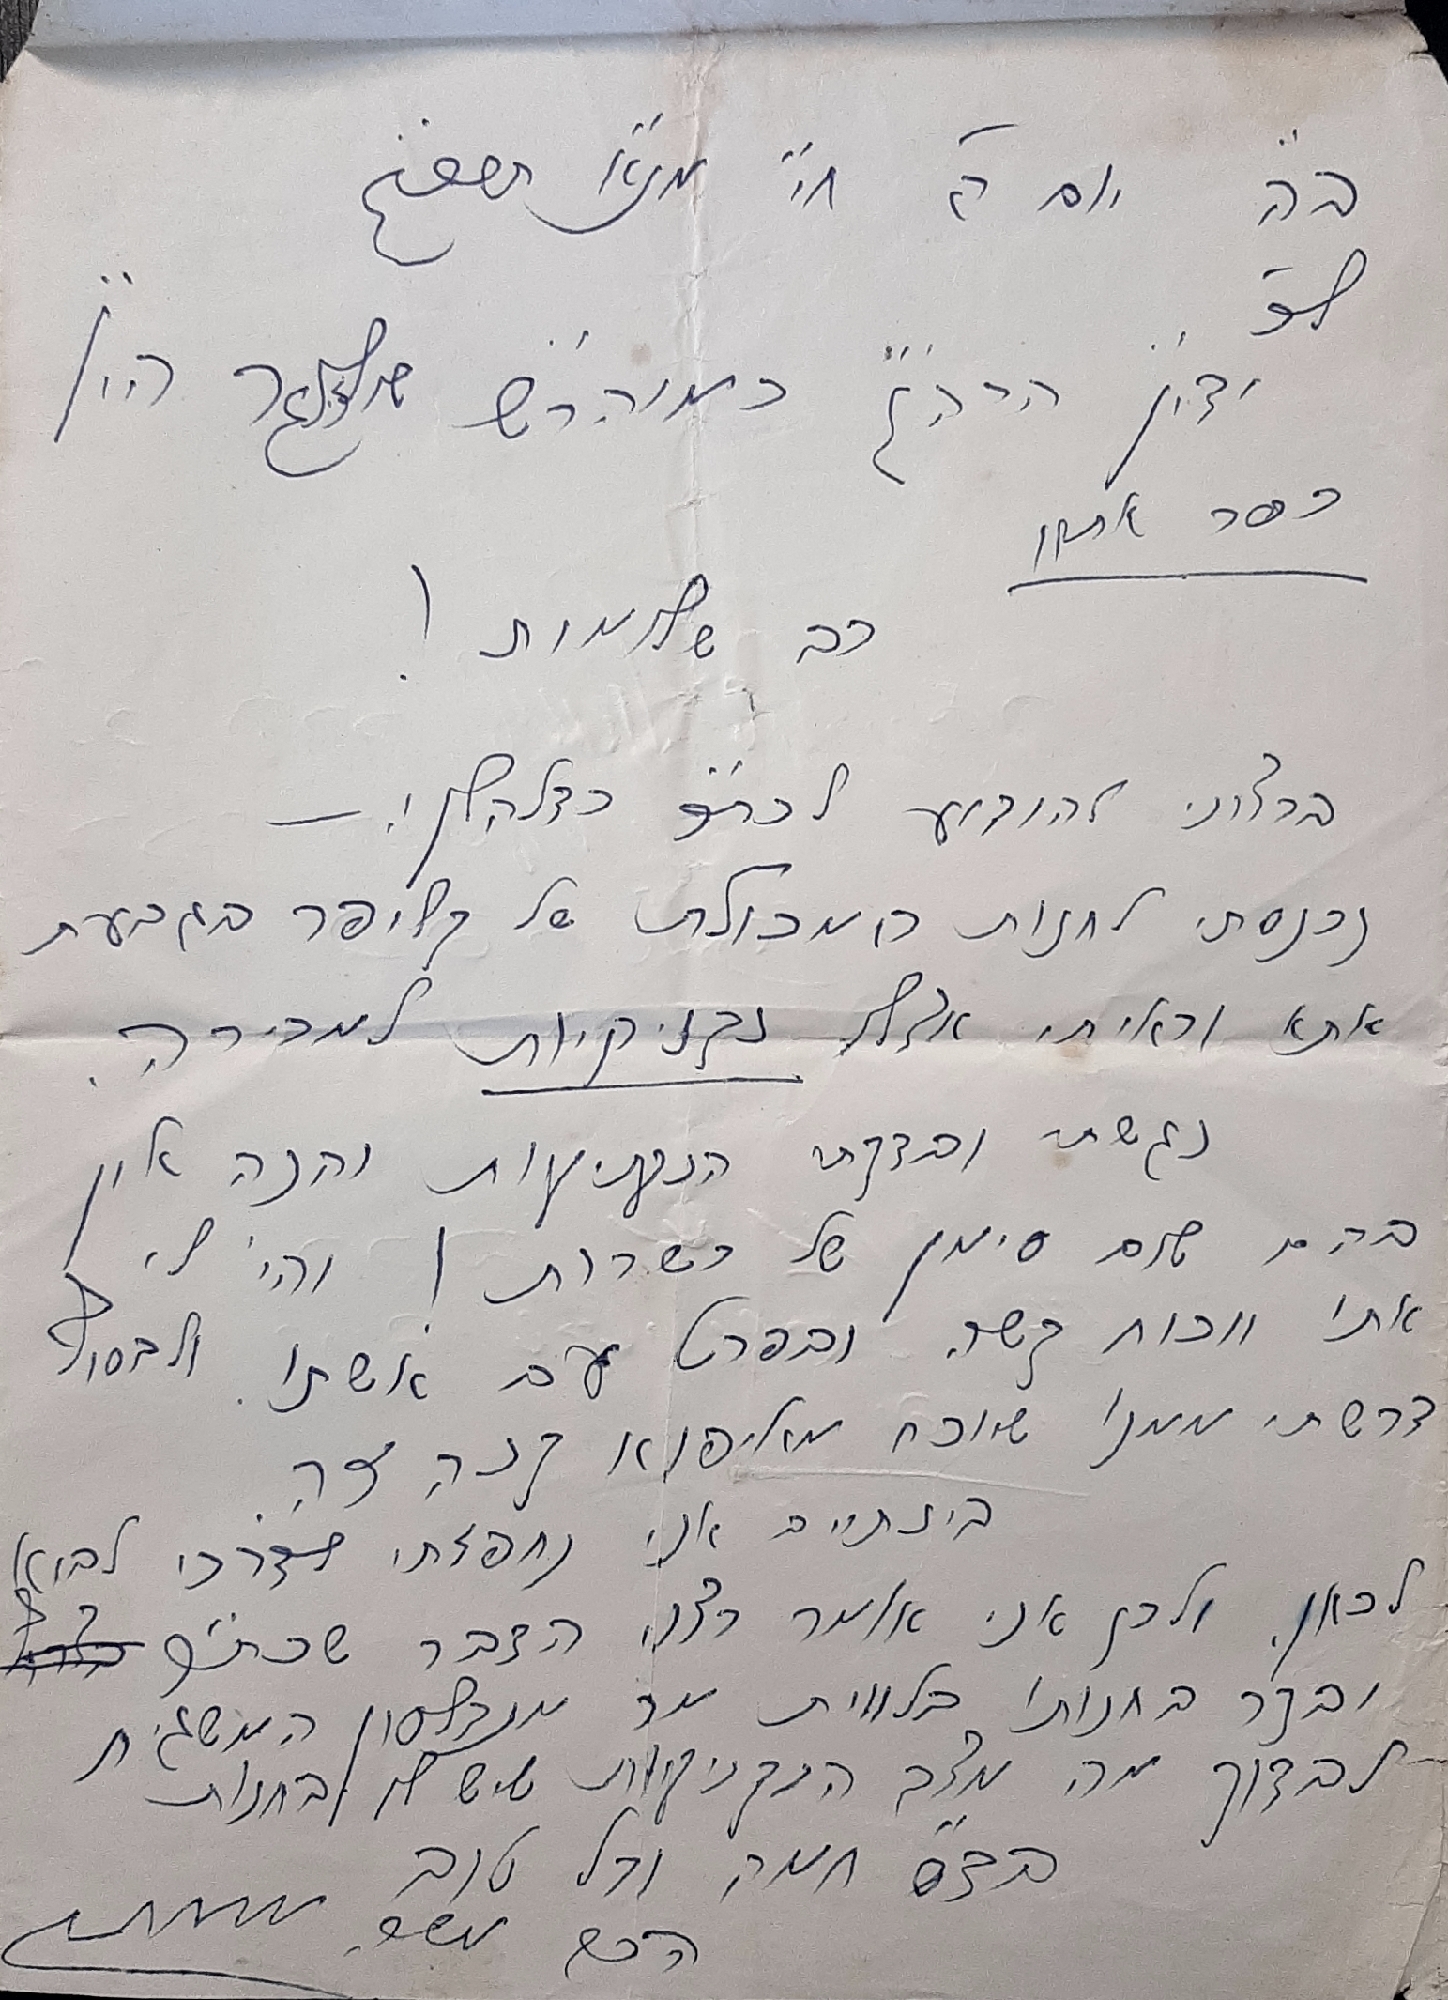 ב"ה יום ה' חי" מנ"א
לכ'
ידי"נ הרה"ג כמוהר"ש שלזינגר הי"ו
כפר אתא
רב שלומות!
ברצוני להודיע לכת"ר כדלהלן: —
נכנסתי לחנות המכולת של קליפר בגבעת
אתא וראיתי אצלו נקניקיות למכירה.
נגשתי ובדקתי הנקניקיות והנה אין
בהם שום סימן של כשרות! והי' לי
אתו ווכוח קשה ובפרט עם אשתו. ולבסוף
דרשתי ממנו שיוכח מאיפוא קנה זה.
בינתיים אני נחפזתי לדרכי לבוא
לכאן. ולכן אני אומר רצוי הדבר שכת"ר
יבקר בחנותו בלווית מר מנדלסון המשגיח
לבדוק מה מצב הנקניקיות שיש לו בחנות
בדש חמה וכל טוב
הרב משה